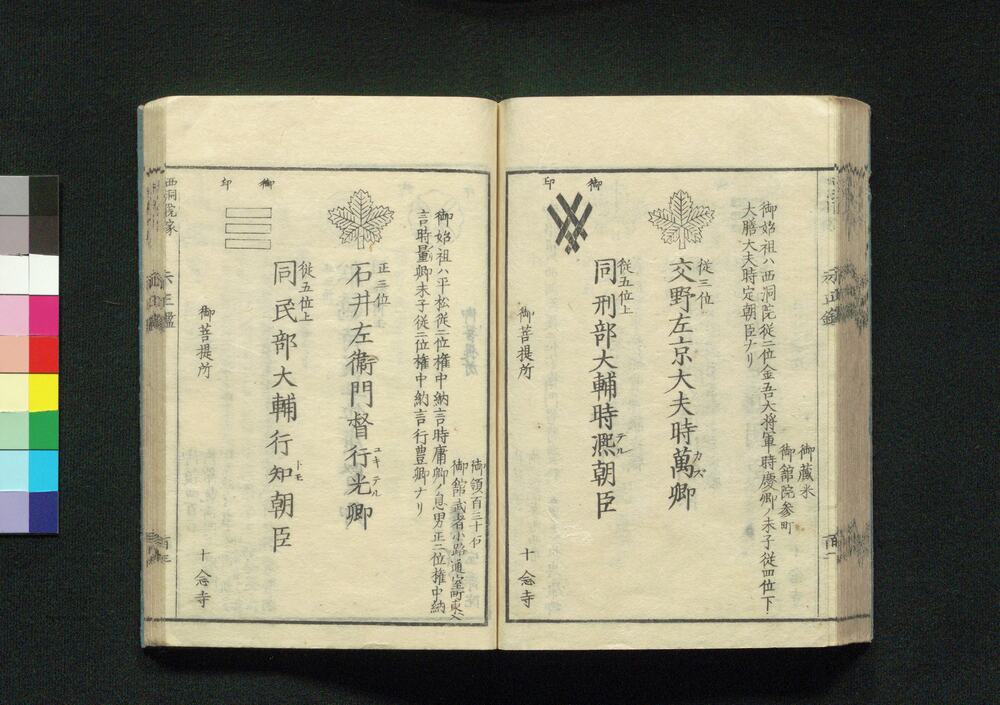 御蔵米
御舘院参町
御始祖ハ西洞院従二位金吾大将軍時慶卿ノ末子従四位下
大膳大夫時定朝臣ナリ
従三位
交野左京大夫時萬卿
カズ
従五位上
同刑部大輔時㷩朝臣
テル
御印
御菩提所
十念寺
御領百三十石
御舘武者小路通室町東入
御始祖ハ平松従二位権中納言時庸卿ノ息男正二位権中納
言時量卿末子従二位権中納言行豊卿ナリ
正三位
石井左衞門督行光卿
ユキテル
従五位上
同民部大輔行知朝臣
トモ
御印
御菩提所
十念寺
西洞院家